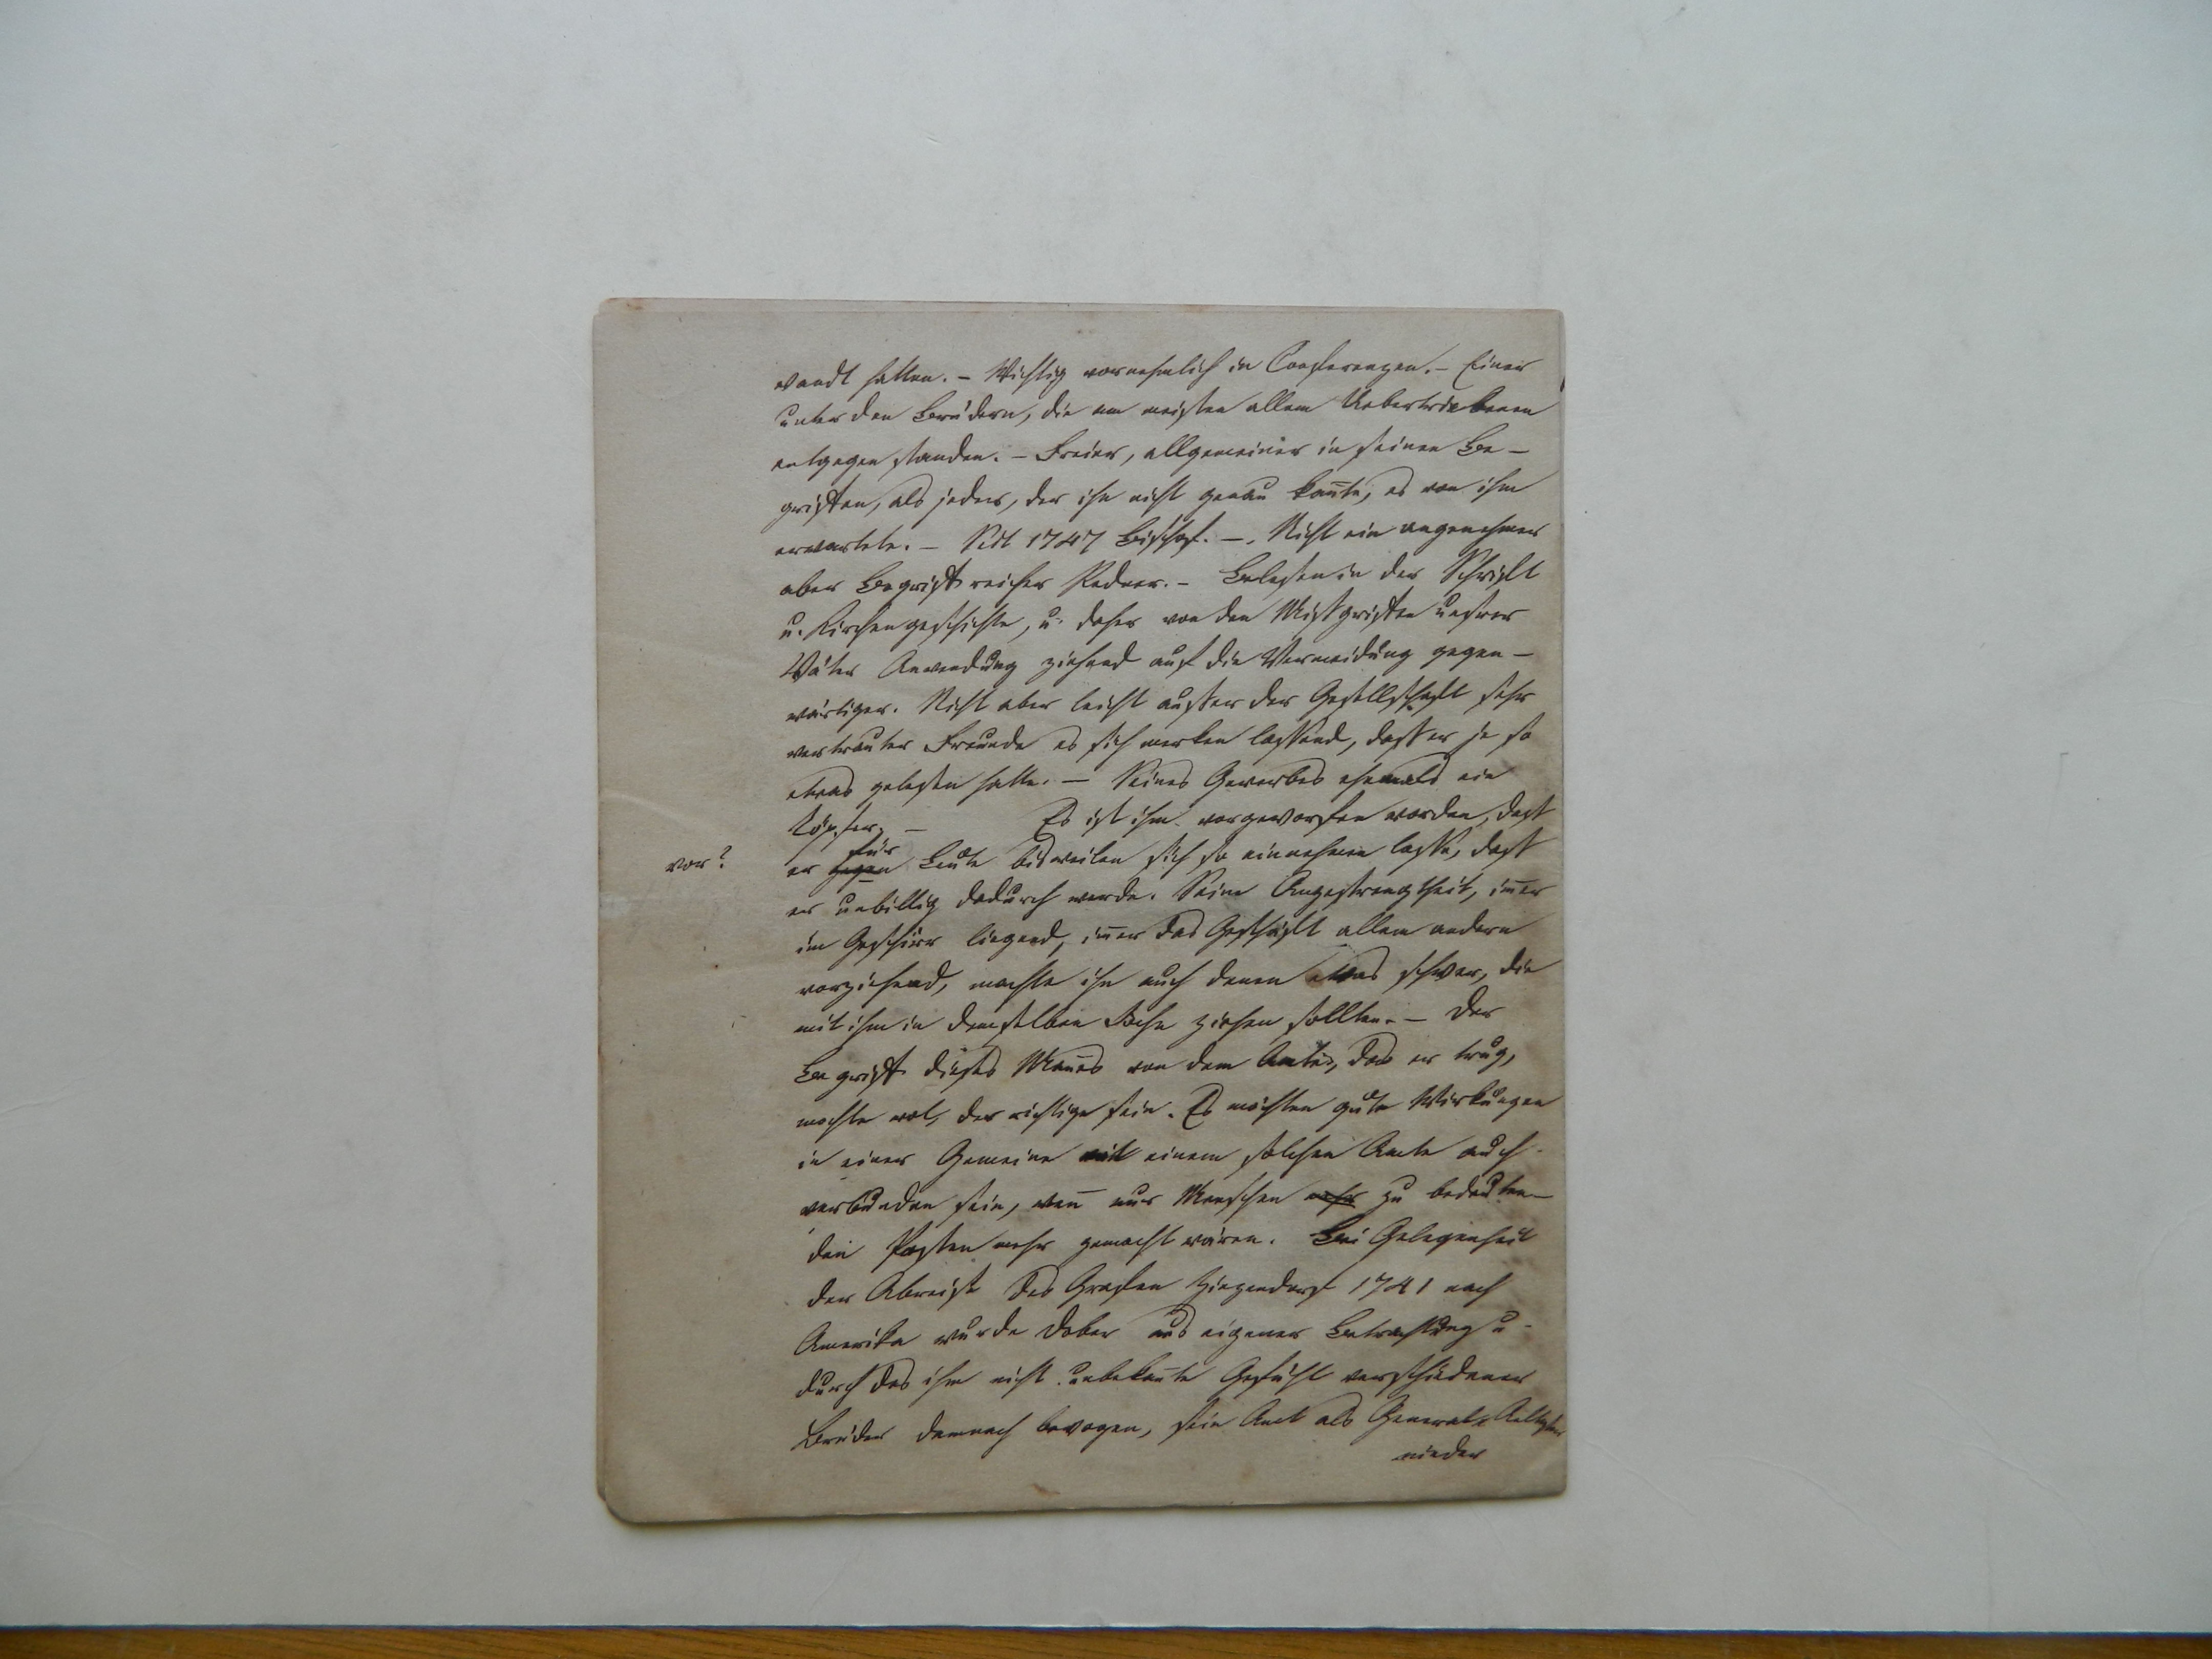 wandt hatten. – Wichtig vornehmlich in Conferenzen. – Einer
unter den Brüdern, die am meisten allem Uebertriebenen
entgegen standen. – Freier, allgemeiner in seinen Be-
griffen, als jeder, der ihn nicht genau kannte, es von ihm
erwartete. – Seit 1747 Bischof. – Nicht ein angenehmer
aber Begriffreicher Redner. – Belesen in der Schrift
u. Kirchengeschichte, u. daher von den Mißgriffen unsrer
Väter Anwendung ziehend auf die Vermeidung gegen-
wärtiger. Nicht aber leicht außer der Gesellschaft sehr
vertrauter Freunde es sich merken lassend, daß er je so
etwas gelesen hatte. – Seines Gewerbes ehemals ein
Töpfer. – Es ist ihm vorgeworfen worden, daß
vor?
für
er gegen Leute bisweilen sich so einnehmen lasse, daß
er unbillig dadurch werde. Seine Angestrengtheit, immer
im Geschirr liegend, immer das Geschäft allem andern
vorziehend, machte ihn auch denen etwas schwer, die
mit ihm in demselben Joche ziehen sollten. – Der
Begriff dieses Mannes von dem Amte, das er trug,
mochte wol, der richtige sein. Es möchten gute Wirkungen
in einer Gemeine mit einem solchen Amte auch
verbunden sein, wenn nur Menschen mehr zu bedeuten-
den Posten mehr gemacht wären. Bei Gelegenheit
der Abreise des Grafen Zinzendorf 1741 nach
Amerika wurde Dober aus eigener Betrachtung u.
durch das ihm nicht unbekannte Gefühl verschiedener
Brüder demnach bewogen, sein Amt als General-Aeltester
nieder